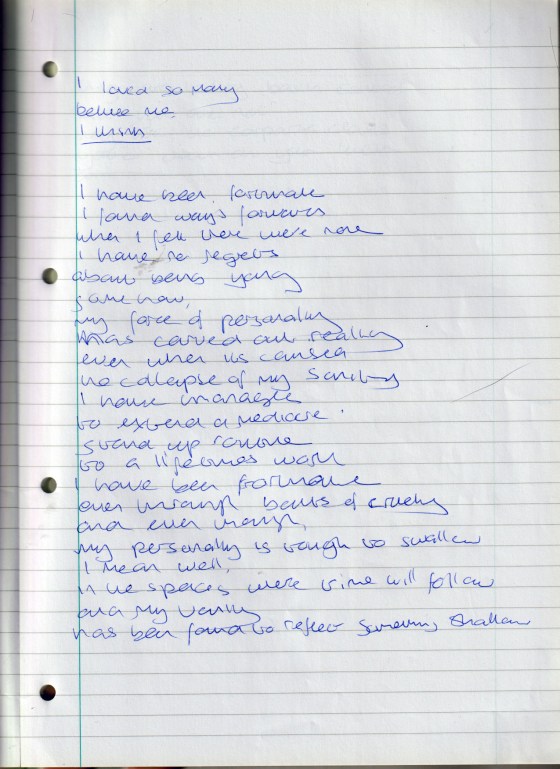 I loved so many
before me
I think
I have been fortunate
I found ways forwards
when I felt there were none
I have no regrets
about being young
some how,
my force of personality
has carved out reality
even when its caused
the collapse of my sanity
I have managed
to extend a mediocre
stand up routine
to a lifetimes work
I have been fortunate
even through bouts of cruelty
and even though,
my personality is tough to swallow
I mean well,
in the spaces where time will follow
and my vanity
has been found to reflect something shallow